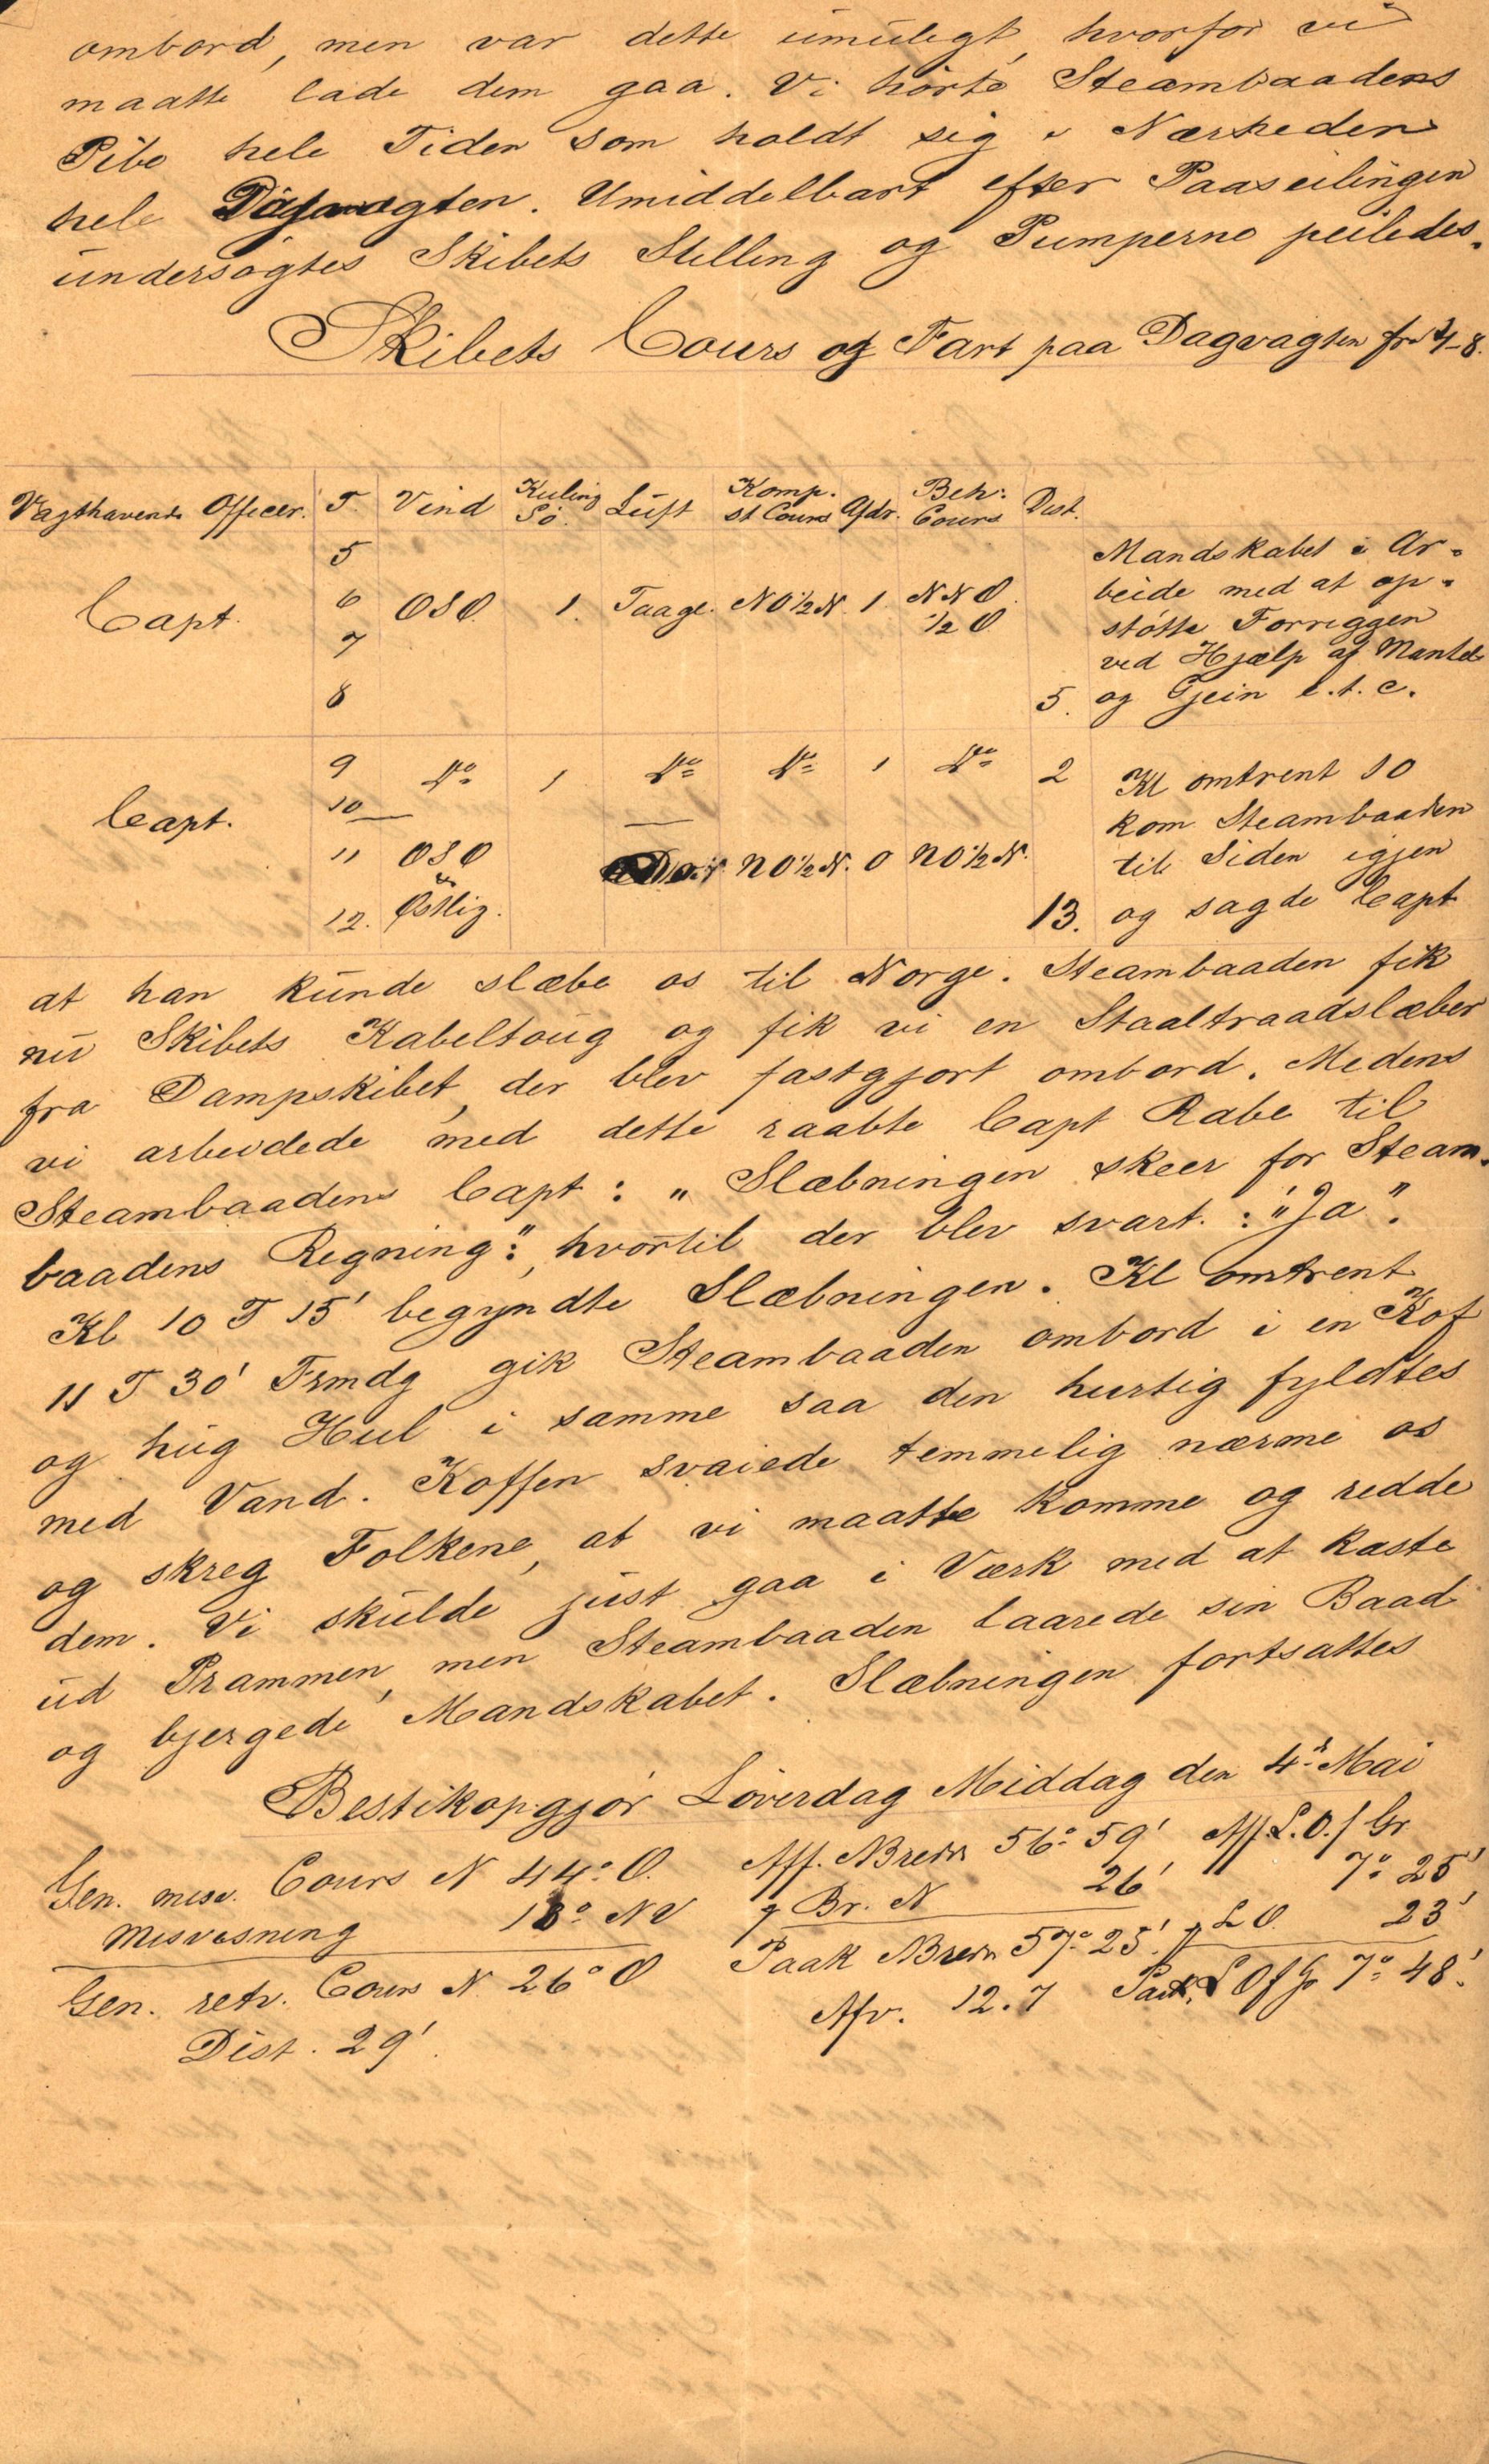 ombord, men var dette umuligt, hvorfor vi
maatte lade dem gaa. Vi hørte Steambaadens
Pibe hele Tiden som holdt sig i Nærheden
hele Dagvagten. Umiddelbart efter Paaseilingen
undersøgtes Skibets Stilling og Pumperne peiledes.
Skibets Cours og Fart paa Dagvagten fra 4-8.
Vagthavende Officer. T. Vind Kuling Sø. Luft Komp. st Cours Afdr. Beh. Cours Dist.
5 Mandskabet i Ar-
Capt. 6 OSO 1. Taage. NO½N. 1. NNO ½O. beide med at op-
7 støtte Forriggen
ved Hjælp af Mantel
8 5. og Gjein e.t.c.
9 Do 1 Do Do 1 Do 2 Kl omtrent 10
Capt. 10 kom Steambaaden
11 OSO NO½N. 0 NO½N. til Siden igjen
12. Østlig. 13. og sagde Capt
at han kunde slæbe os til Norge. Steambaaden fik
nu Skibets Kabeltoug og fik vi en Staaltraadslæber
fra Dampskibet, der blev fastgjort ombord. Medens
vi arbeidede med dette raabte Capt Rabe til
Steambaadens Capt: „Slæbningen skeer for Steam-
baadens Regning", hvortil der blev svart: "Ja".
Kl 10 T 15' begyndte Slæbningen. Kl omtrent
11 T 30' Frmdg gik Steambaaden ombord i en Kof
og hug Hul i samme saa den hurtig fyldtes
med Vand. Koffen svaiede temmelig nærme os
og skreg Folkene, at vi maatte komme og redde
dem. Vi skulde just gaa i Værk med at kaste
ud Prammen, men Steambaaden laarede sin Baad
og bjergede Mandskabet. Slæbningen fortsattes
Bestikopgjør Løverdag Middag den 4de Mai
Gen. misv. Cours N 44° O. Aff. NBredde 56° 59' Aff. L. O. f Gr 7° 25'
Misvisning 18° NV Br. N 26' L O. 23'
Gen. retv. Cours N. 26° O Paak NBrede 57° 25'. Paak. L O f Gr 7° 48'.
Dist. 29'. Afv. 12.7